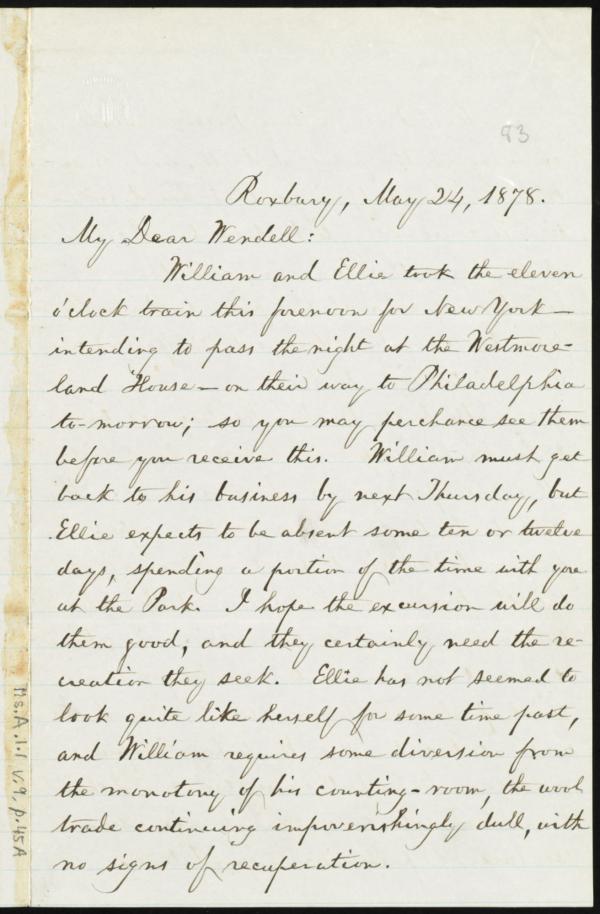 93
Roxbury, May 24, 1878.
My Dear Wendell:
William and Ellie took the eleven
o'clock train this forenoon for New York—
intending to pass the night at the Westmore-
land House—on their way to Philadelphia
to-morrow; so you may perchance see them
before you receive this. William must get
back to his business by next Thursday, but
Ellie expects to be absent some ten or twelve
days, spending a portion of the time with you
at the Park. I hope the excursion will do
them good, and they certainly need the re-
creation they seek. Ellie has not seemed to
look quite like herself for some time past,
and William requires some diversion from
the monotony of his counting-room, the wool
trade continuing impoverishingly dull, with
no signs of recuperation.
Ms.A.1.1 v.9, p.45A